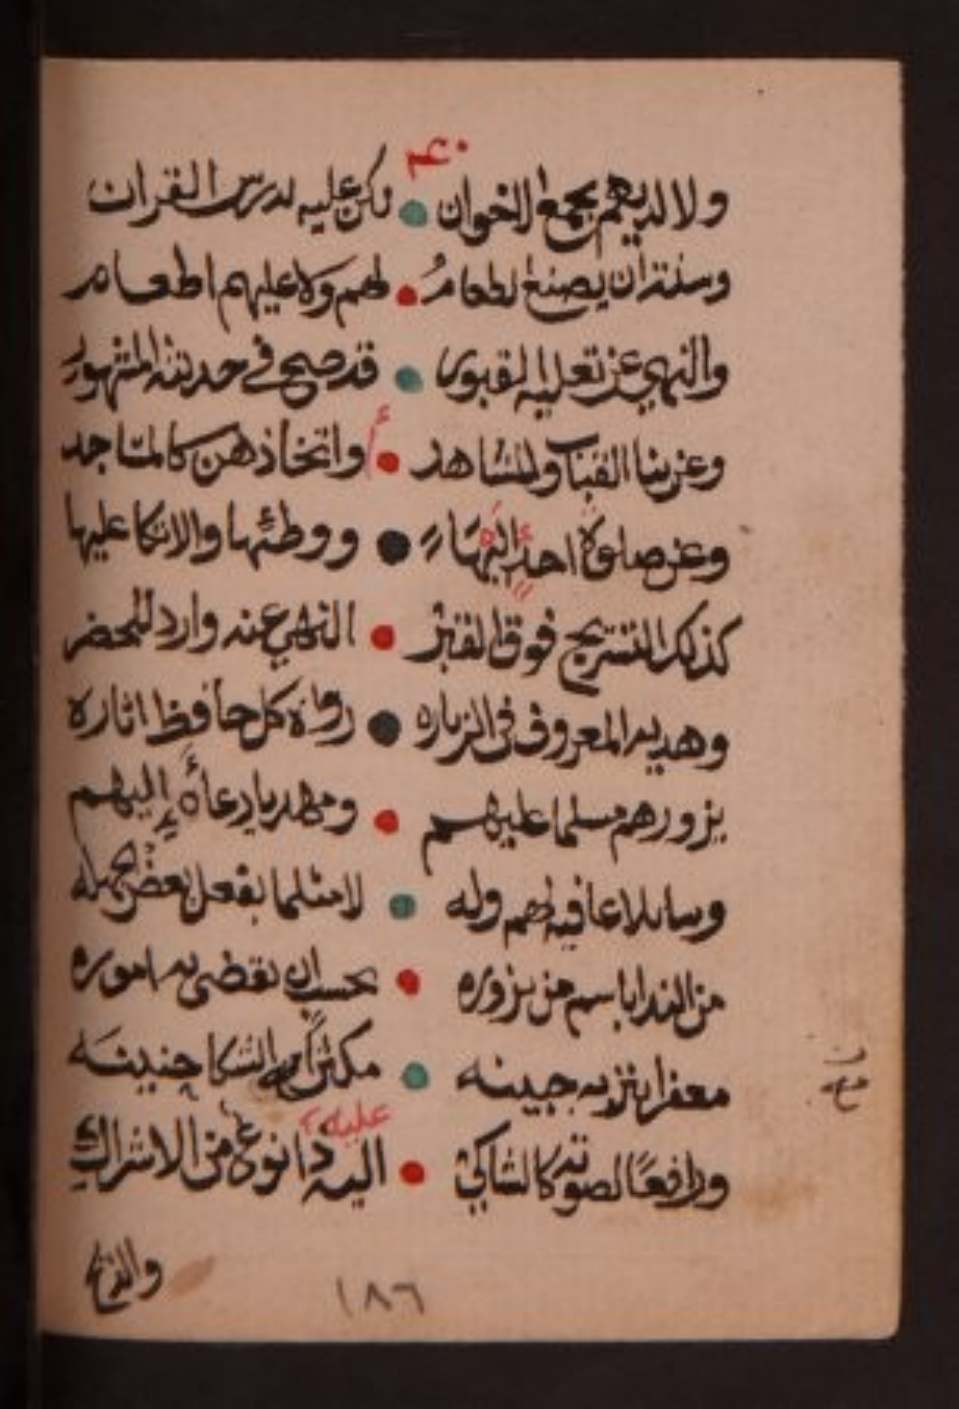 ولا لديهم يجمع الاخوان لكن عليه لدرس القران
وسنة ان يصنع الطعام لهم ولا عليهم اطعام
والنهي عن تعلية القبور قد صح في حديثه المشهور
وعن بنا القباب والمشاهد واتخاذهن كالمساجد
وعن صلوة احد اليها ووطئها والاتكا عليها
كذلك التسريج فوق القبر النهي عنه وارد للحضر
وهديه المعروف في الزياره رواه كل حافظ اثاره
يزورهم مسلما عليهم ومهديا دعاءه إليهم
وسايلا عافية لهم وله لا مثلما يفعل بعض الجهله
من الندا باسم من يزوره يحسب ان تقضى به اموره
معفرا بتربه جبينه مكثرا من البكا حنينه
ورافعا لصوته كالشاكي اليه ذا نوع من الاشراك
عليه
والذبح
١٨٦